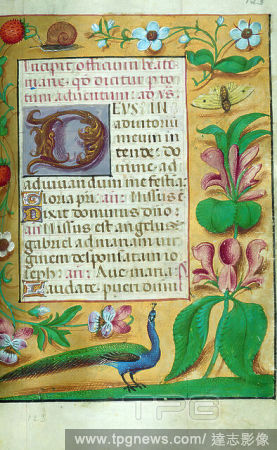 123
Incipit officium beate
marie. qd dicitur p to
tum aduentum: ad vs.
DEVS IN
adiutoriū
meum in
tende: do
mine ad
adiuuandum me festīa:
Gloria pri: añ: Missus ē
Dixit dominus dño:
añ: Missus est angelus
gabriel ad mariam vir
ginem desponsatam io
seph: añ: Aue maria:
Laudate pueri domi
123
TPG
www.tpgnews.com/達志影像